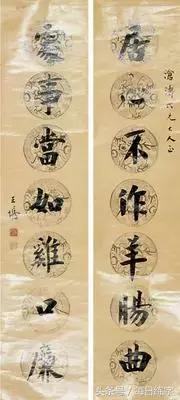 滄濤六兄大人正
居心不作羊腸曲
處事當如雞口廉
王
头条号 / 每日练字